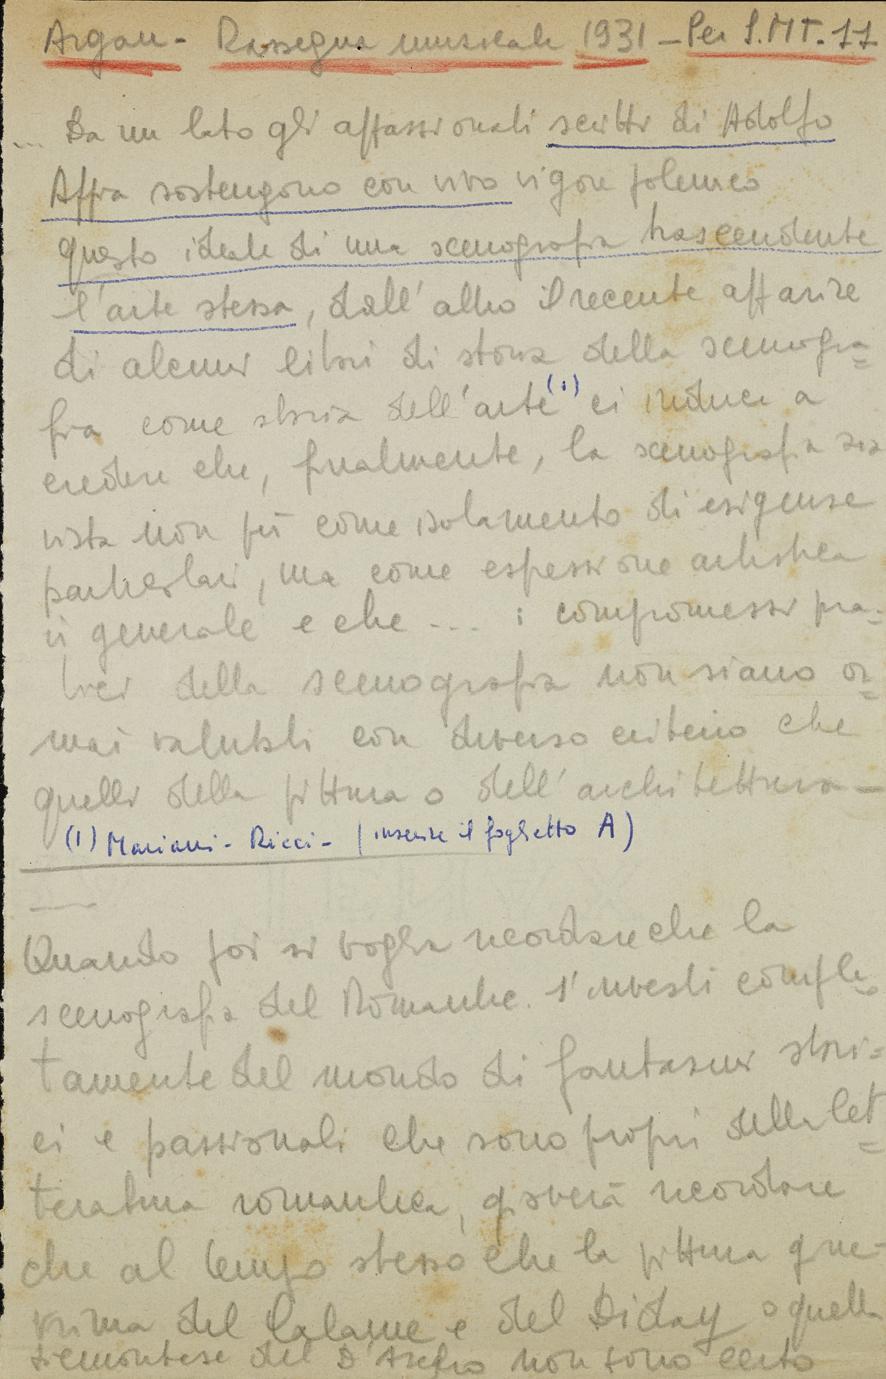 Argan - Rassegna musicale 1931 - Per S.MT. 11
... Da un lato gli appassionati scritti di Adolfo
Appia sostengono con vivo vigore polemico
questo ideale di una scenografia trascendente
l'arte stessa, dall'altro il recente apparire
di alcuni libri di storia della scenogra=
fia come storia dell'arte (1) ci induce a
credere che, finalmente, la scenografia sia
vista non più come isolamento di esigenze
particolari, ma come espressione artistica
in generale e che ... i compromessi pra=
tici della scenografia non siano or=
mai valutati con diverso criterio che
quelli della pittura o dell'architettura -
(1) Mariani - Ricci - (inserire il foglietto A)
Quando poi si voglia ricordare che la
scenografia del Romantic. s'investì comple=
tamente del mondo di fantasmi stori=
ci e passionali che sono propri della let=
teratura romantica, gioverà ricordare
che al tempo stesso che la pittura gine=
vrina del Calame e del Diday o quella
piemontese del D'Azeglio non sono certo